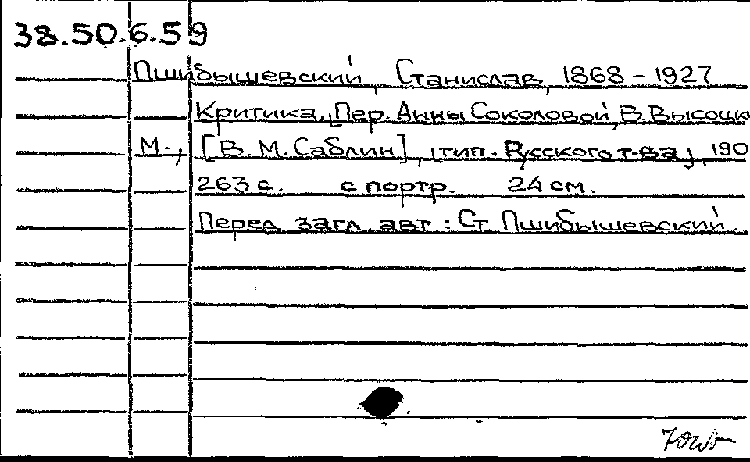 38.50.6.59
Пшибышевский, Станислав, 1868-1927
Критика. Пер. Анны Соколовой, В. Высоцк
М., [В. М. Саблин], (тип. Русского т-ва), 190
263 с. с портр. 24 см.
Перед загл. авт.: Ст. Пшибышевский.